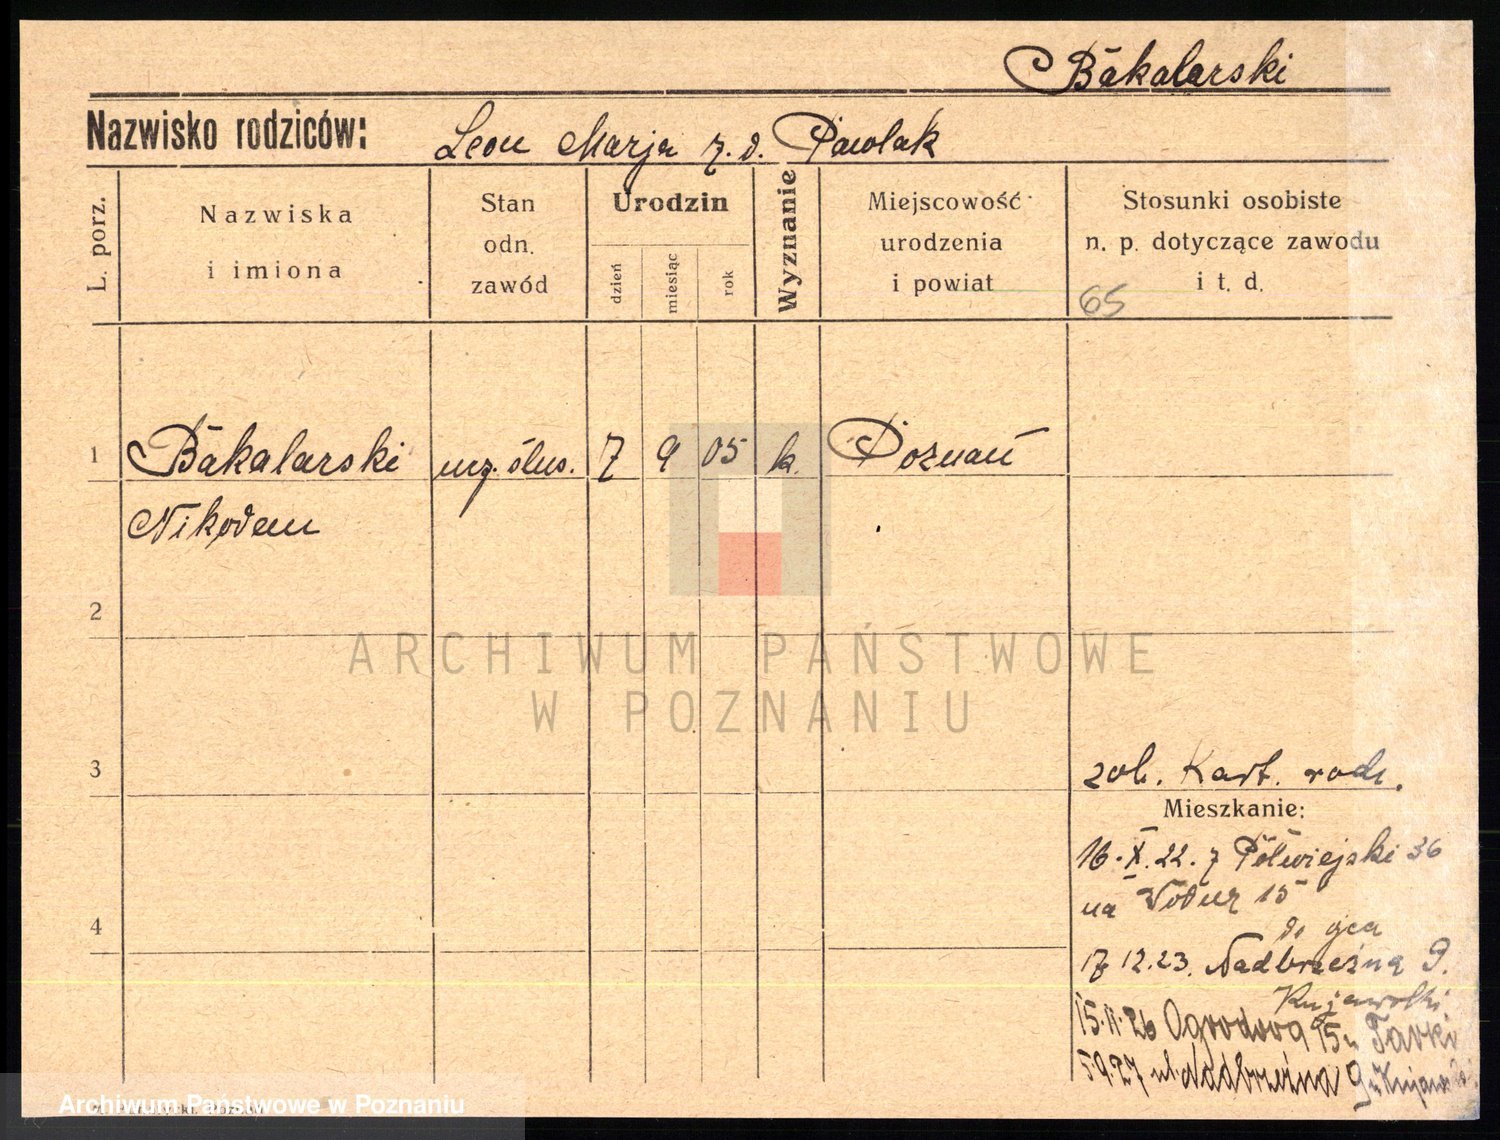 Bąkalarski
Nazwisko rodziców: Leon Marja z. d. Pawlak
L. porz.
Nazwiska
i imiona
Stan
odn.
zawód
Urodzin
dzień
miesiąc
rok
Wyznanie
Miejscowość
urodzenia
i powiat
Stosunki osobiste
n. p. dotyczące zawodu
i t. d.
65
1 Bąkalarski ucz. ślus. 7 9 05 k. Poznań
Nikodem
2
ARCHIWUM PAŃSTWOWE
W POZNANIU
3
zob. Kart. rodz.
Mieszkanie:
16.X.22. z Półwiejski 36
na Wodną 15
4
do ojca
17 12.23. Nadbrzeżna 9.
15.11.26 Ogrodowa 15
5 9.27 ul. Nadbrzeżna 9
Archiwum Państwowe w Poznaniu